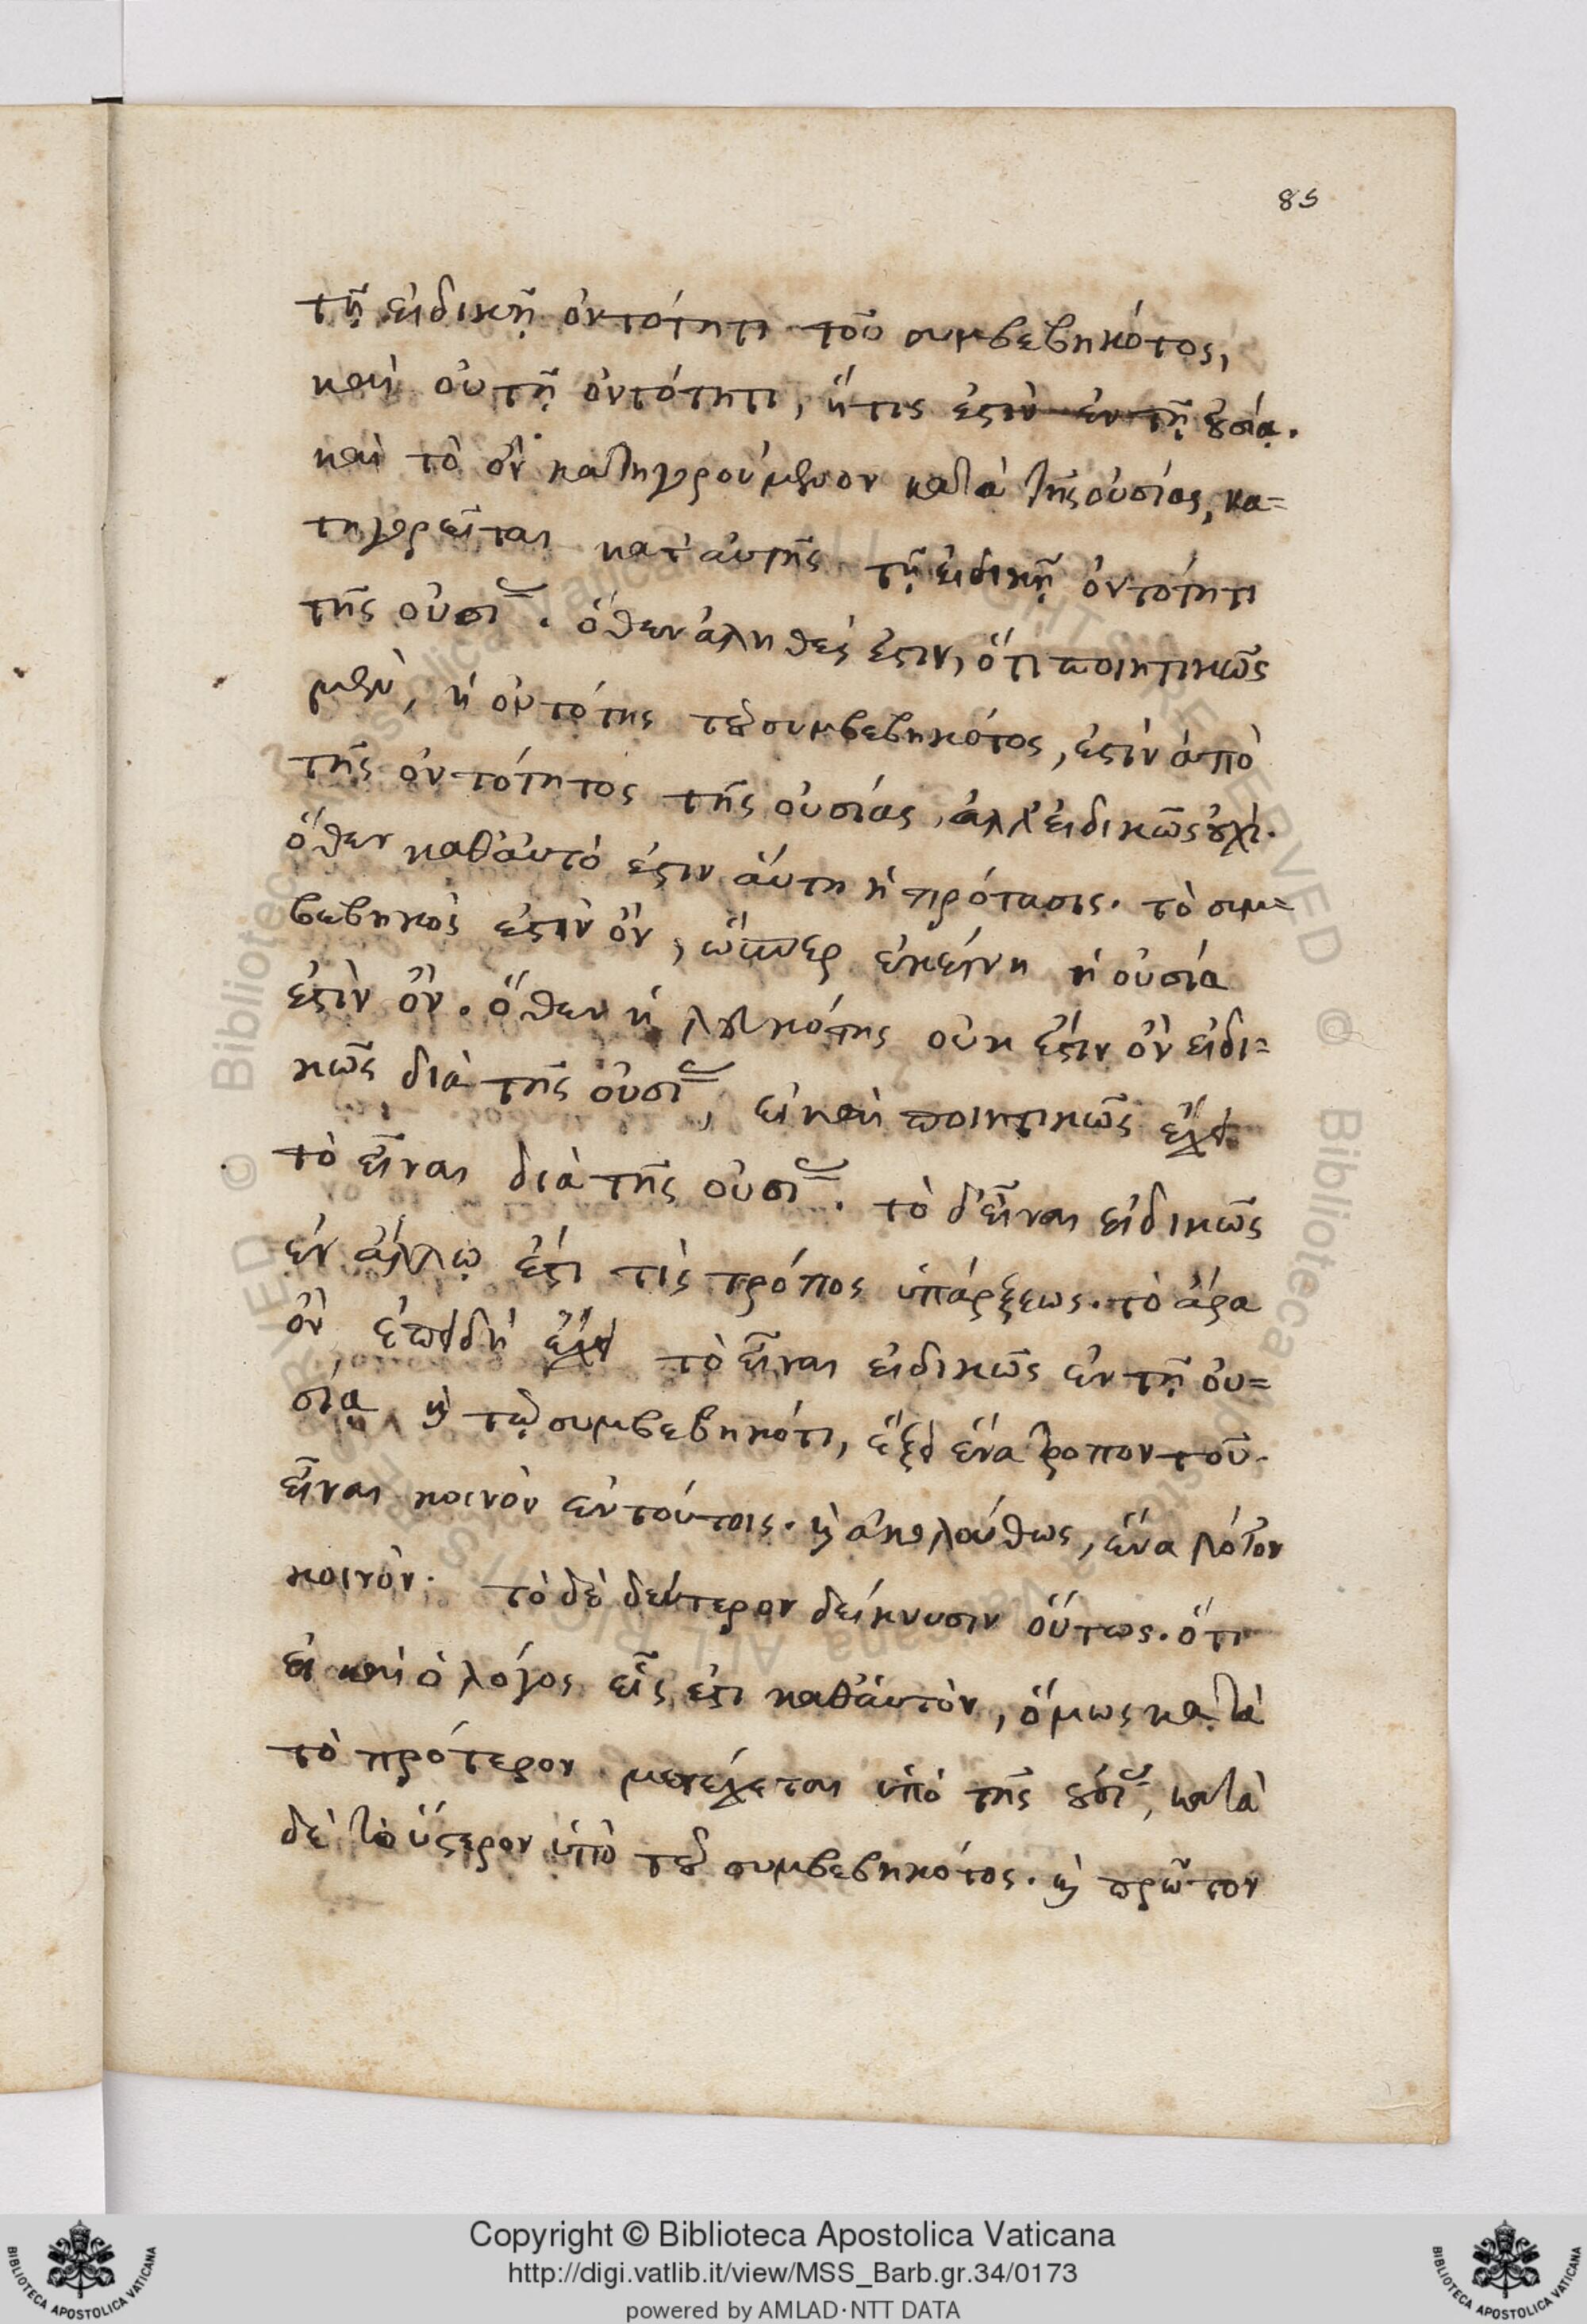 85
τῇ εἰδικῇ ὀντότητι τοῦ συμβεβηκότος,
καὶ οὐ τῇ ὀντότητι, ἥτις ἐστὶν ἐν τῇ οὐσίᾳ.
καὶ τὸ ὂν κατηγορούμενον κατὰ τῆς οὐσίας, κα=
τηγορεῖται κατ' αὐτῆς τῇ εἰδικῇ ὀντότητι
τῆς οὐσίας. ὅθεν ἀληθές ἐστιν, ὅτι ποιητικῶς
μὲν, ἡ ὀντότης τοῦ συμβεβηκότος, ἐστὶν ἀπὸ
τῆς ὀντότητος τῆς οὐσίας, ἀλλ' εἰδικῶς οὐχί.
ὅθεν καθ' αὑτό ἐστιν αὕτη ἡ πρότασις. τὸ συμ=
βεβηκός ἐστιν ὂν, ὥσπερ ἐκείνη ἡ οὐσία
ἐστὶν ὄν. ὅθεν ἡ λευκότης οὐκ ἔστιν ὂν εἰδι=
κῶς διὰ τῆς οὐσίας, εἰ καὶ ποιητικῶς ἔχει
τὸ εἶναι διὰ τῆς οὐσίας. τὸ δ' εἶναι εἰδικῶς
ἐν ἄλλῳ ἐστί τις τρόπος ὑπάρξεως. τὸ ἄρα
ὂν, ἐπειδὴ ἔχει τὸ εἶναι εἰδικῶς ἐν τῇ οὐ=
σίᾳ καὶ τῷ συμβεβηκότι, ἕξει ἕνα τρόπον τοῦ
εἶναι κοινὸν ἐν τούτοις. καὶ ἀκολούθως, ἕνα λόγον
κοινὸν. τὸ δὲ δεύτερον δείκνυσιν οὕτως. ὅτι
εἰ καὶ ὁ λόγος εἷς ἐστι καθ' αὑτὸν, ὅμως κατὰ
τὸ πρότερον μετέχεται ὑπὸ τῆς οὐσίας, κατὰ
δὲ τὸ ὕστερον ὑπὸ τοῦ συμβεβηκότος. καὶ πρῶτον
Copyright © Biblioteca Apostolica Vaticana
http://digi.vatlib.it/view/MSS_Barb.gr.34/0173
powered by AMLAD·NTT DATA